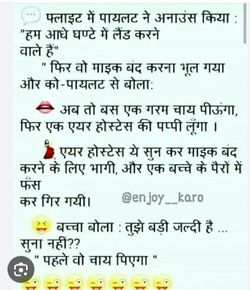 💬 फ्लाइट में पायलट ने अनाउंस किया :
"हम आधे घण्टे में लैंड करने
वाले हैं"
" फिर वो माइक बंद करना भूल गया
और को-पायलट से बोला:
👄 अब तो बस एक गरम चाय पीऊंगा,
फिर एक एयर होस्टेस की पप्पी लूँगा ।
💃 एयर होस्टेस ये सुन कर माइक बंद
करने के लिए भागी, और एक बच्चे के पैरों में
फँस
कर गिर गयी।
@enjoy__karo
😝 बच्चा बोला : तुझे बड़ी जल्दी है ...
सुना नहीं??
" पहले वो चाय पिएगा "
😜😜😜😜😜😜